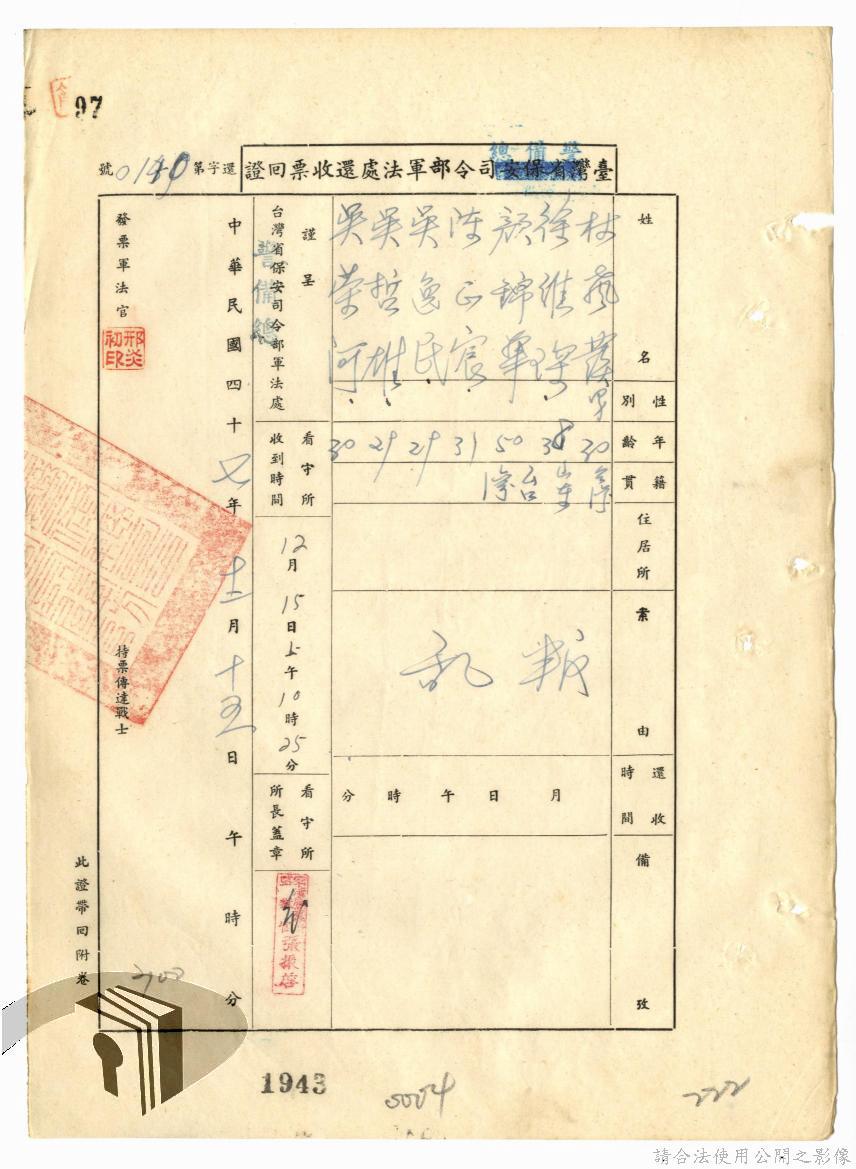 97
警備總
臺灣省保安司令部軍法處還收票回證
還字第0140號
姓名
林
徐維琛
顏錦華
陳正宸
吳逸民
吳哲雄
吳榮河
性別
男
年齡
30
38
50
31
29
29
30
籍貫
山東
台灣
住居所
案由
叛乱
還收時間
月 日 午 時 分
備攷
謹呈
台灣省保安司令部軍法處
警備總
看守所收到時間
12月15日上午10時25分
看守所所長蓋章
張振啓
中華民國四十七年十二月十五日 午 時 分
發票軍法官
邢炎初印
持票傳達戰士
此證帶回附卷
1943
5004
222
請合法使用公開之影像